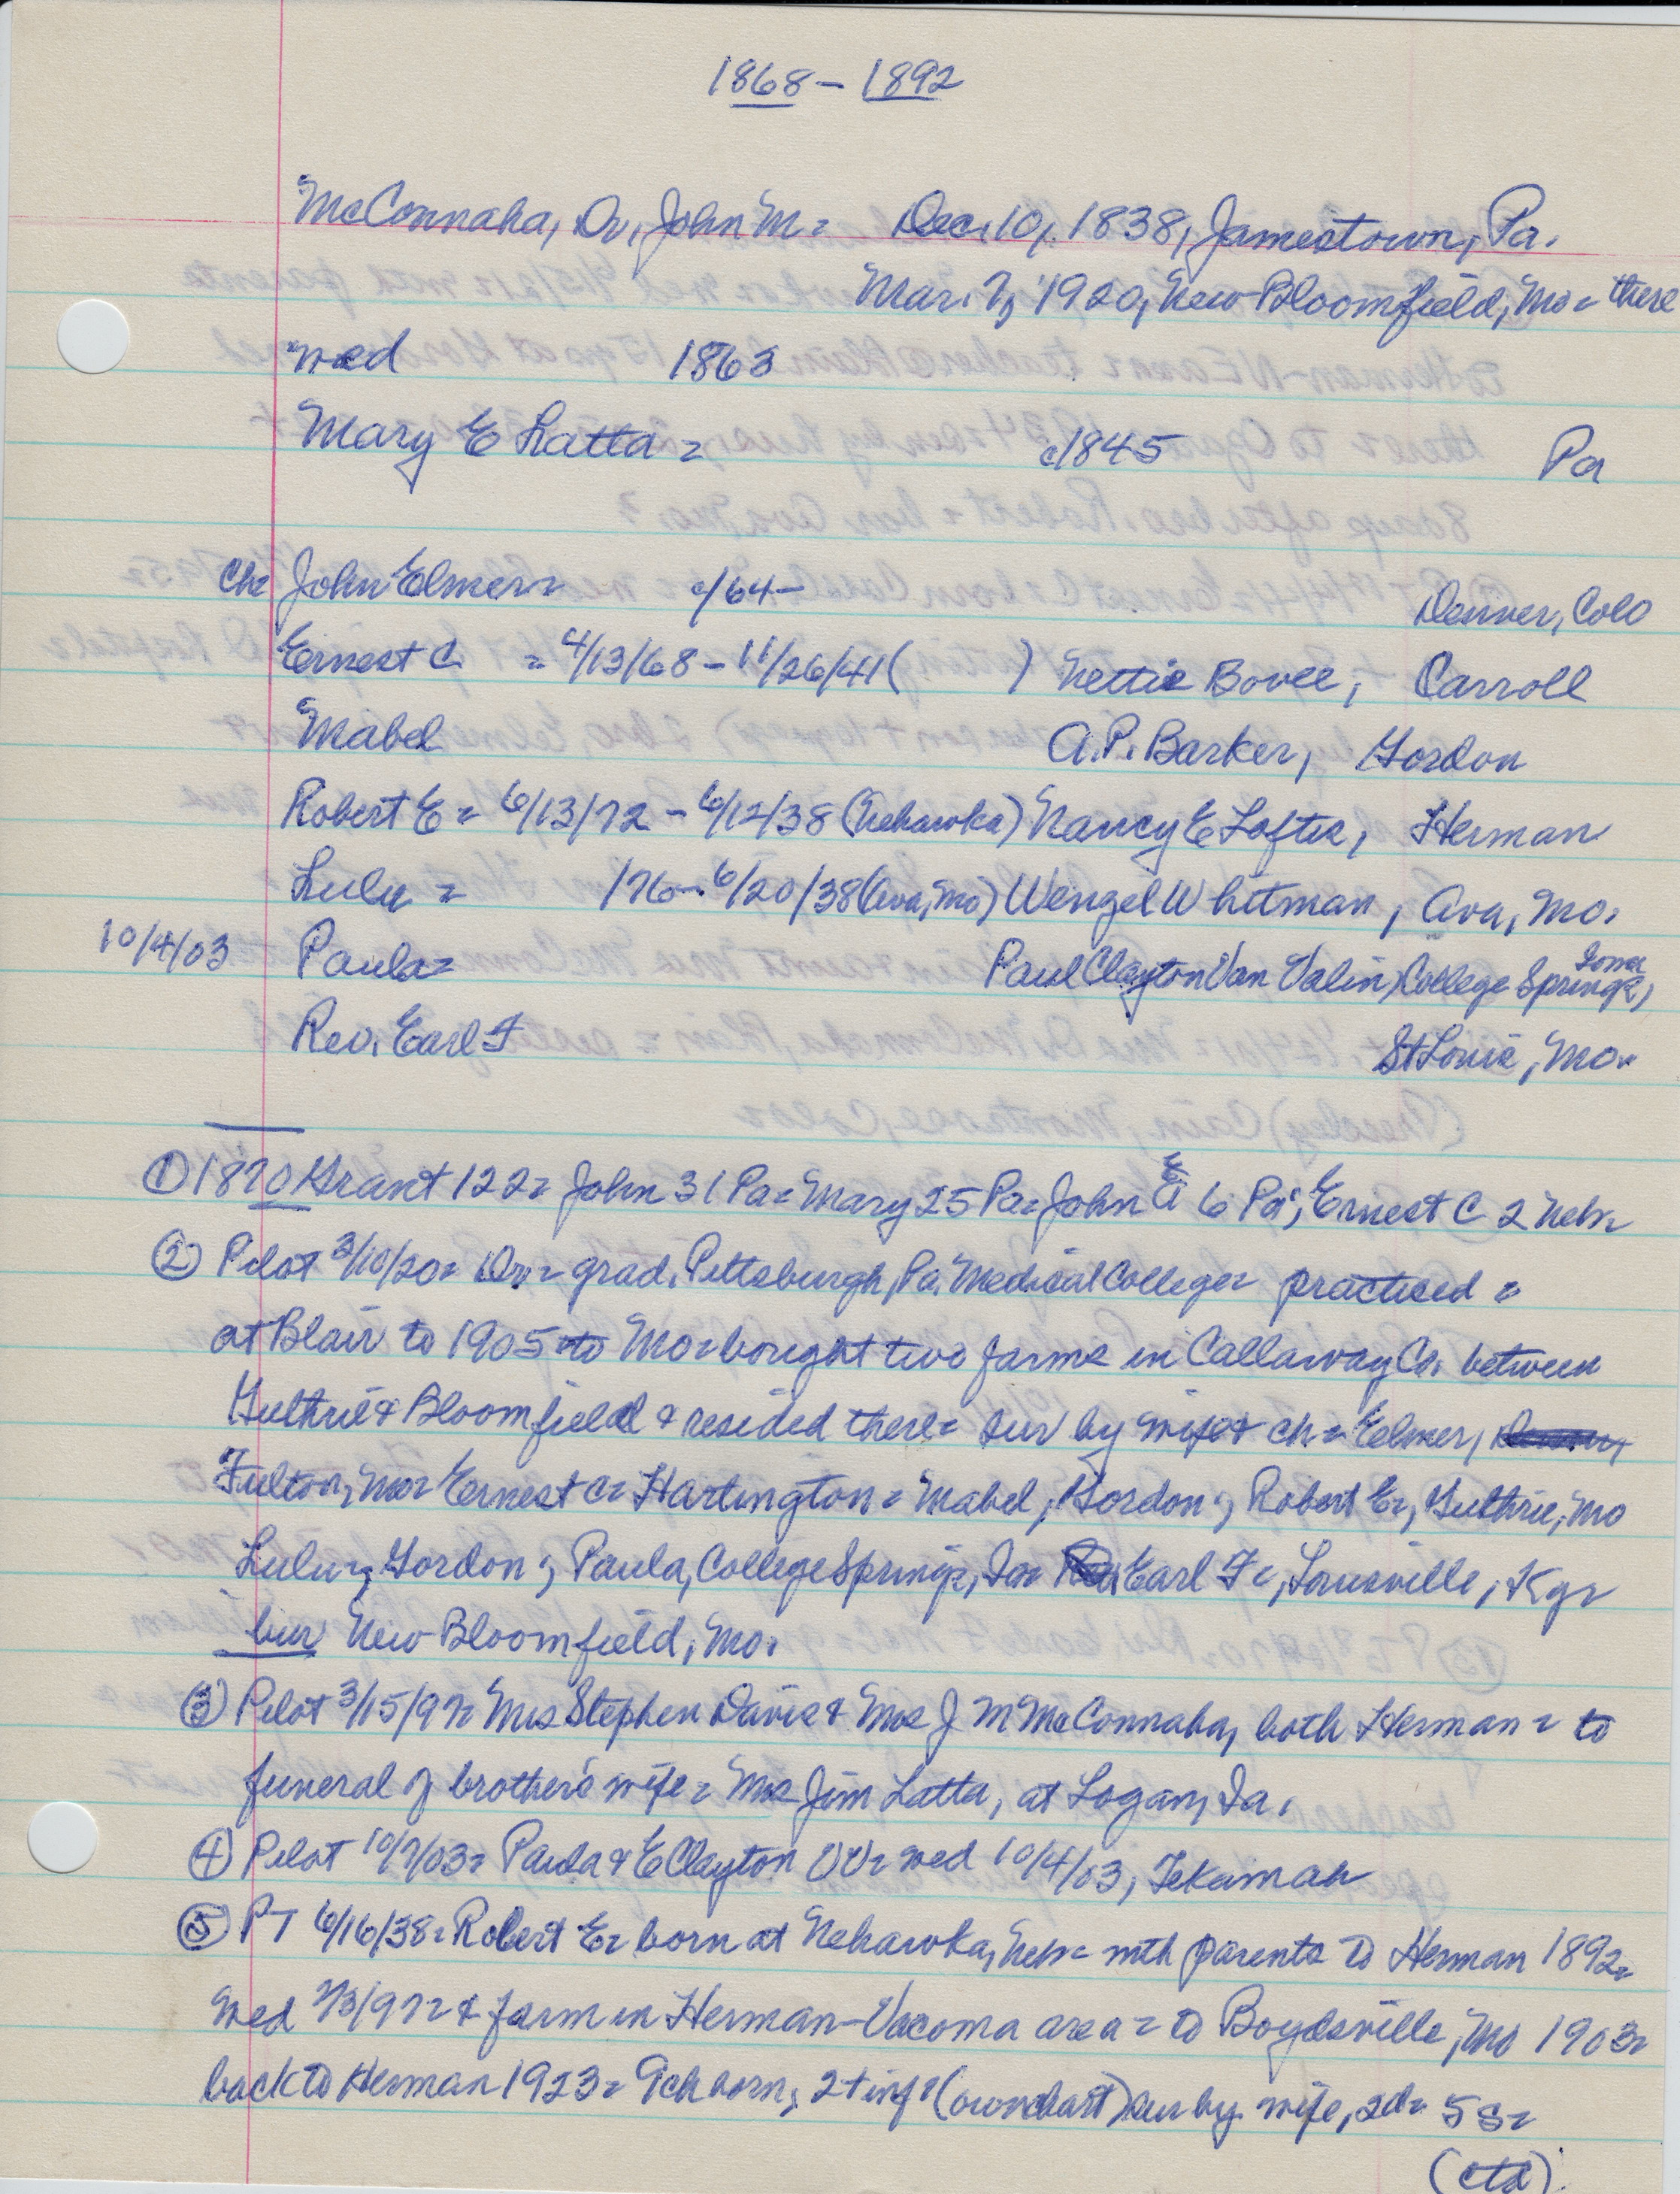 1868 - 1892
McConnaha, Dr. John M = Dec. 10, 1838, Jamestown, Pa.
Mar. 7, 1920, New Bloomfield, Mo = there
wed 1863
Mary E Latta = c1845 Pa
Ch = John Elmer = c/64 - Denver, Colo
Ernest C = 4/13/68 - 11/26/41 ( ) Nettie Bovee, Carroll
Mabel A. P. Barker, Gordon
Robert E = 6/13/72 - 6/12/38 (Nehawka) Nancy E Loftis, Herman
Lulu = /76 - 6/20/38 (Ava, Mo) Wengel Whitman, Ava, Mo.
10/4/03 Paula = Paul Clayton Van Valin, College Springs, Iowa
Rev. Earl F St Louis, Mo.
① 1870 Grant 122 = John 31 Pa = Mary 25 Pa = John E 6 Pa; Ernest C 2 Neb =
② Pilot 3/10/20 = Dr = grad. Pittsburgh, Pa. Medical College = practised =
at Blair to 1905 = to Mo = bought two farms in Callaway Co. between
Guthrie & Bloomfield & resided there = sur by wife & ch = Elmer,
Fulton, Mo = Ernest C = Hartington = Mabel, Gordon; Robert E =, Guthrie, Mo
Lulu =, Gordon; Paula, College Springs, Ia = Earl F =, Louisville, Ky =
bur New Bloomfield, Mo.
③ Pilot 3/15/97 = Mrs Stephen Davis & Mrs J M McConnaha, both Herman = to
funeral of brother's wife = Mrs Jim Latta, at Logan, Ia.
④ Pilot 10/7/03 = Paula & E Clayton VV = wed 10/4/03, Tekamah
⑤ PT 6/16/38 = Robert E = born at Nehawka, Neb = with parents to Herman 1892 =
wed 7/3/97 = & farm in Herman-Vacoma area = to Boydsville, Mo 1903 =
back to Herman 1923 = 9 ch born; 2 + inf = (own chart) sur by wife, 2d = 5s =
(ctd).